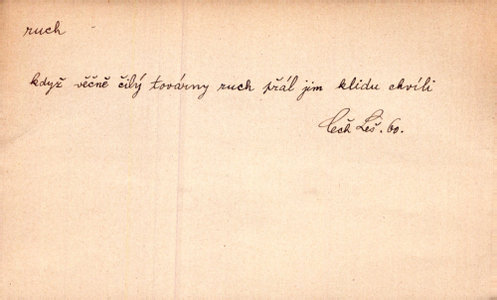 ruch
když věčně čilý továrny ruch přál jim klidu chvíli
Čech Leš. 60.